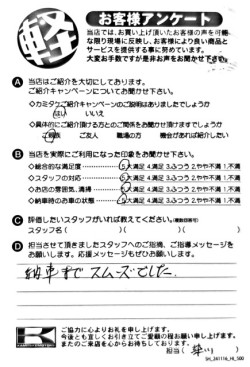 軽
お客様アンケート
当店では、お買い上げ頂いたお客様の声を可能
な限り現場に反映し、お客様により良い商品と
サービスを提供する事に努めています。
大変お手数ですが是非お声をお聞かせ下さい。
A 当店はご紹介を大切にしております。
ご紹介キャンペーンについてお聞かせ下さい。
◇カミタケご紹介キャンペーンのご説明はありましたでしょうか
はい いいえ
◇具体的にご紹介頂ける方とのご関係をお聞かせ頂けますでしょうか
ご親族 ご友人 職場の方 機会があれば紹介したい
B 当店を実際にご利用になった印象をお聞かせ下さい。
◇総合的な満足度 5.大満足 4.満足 3.ふつう 2.やや不満 1.不満
◇スタッフの対応 5.大満足 4.満足 3.ふつう 2.やや不満 1.不満
◇お店の雰囲気、清掃 5.大満足 4.満足 3.ふつう 2.やや不満 1.不満
◇納車時のお車の状態 5.大満足 4.満足 3.ふつう 2.やや不満 1.不満
C 評価したいスタッフがいれば教えてください。(複数回答可)
スタッフ名( )( )( )
D 担当させて頂きましたスタッフへのご指摘、ご指導メッセージを
お願いします。応援メッセージもぜひお聞かせ下さい。
納車まで スムーズでした。
ご協力に心よりお礼を申し上げます。
今後とも宜しくお引き立てご愛顧の程お願い申し上げます。
またのご来店を心からお待ちしております。
担当( )